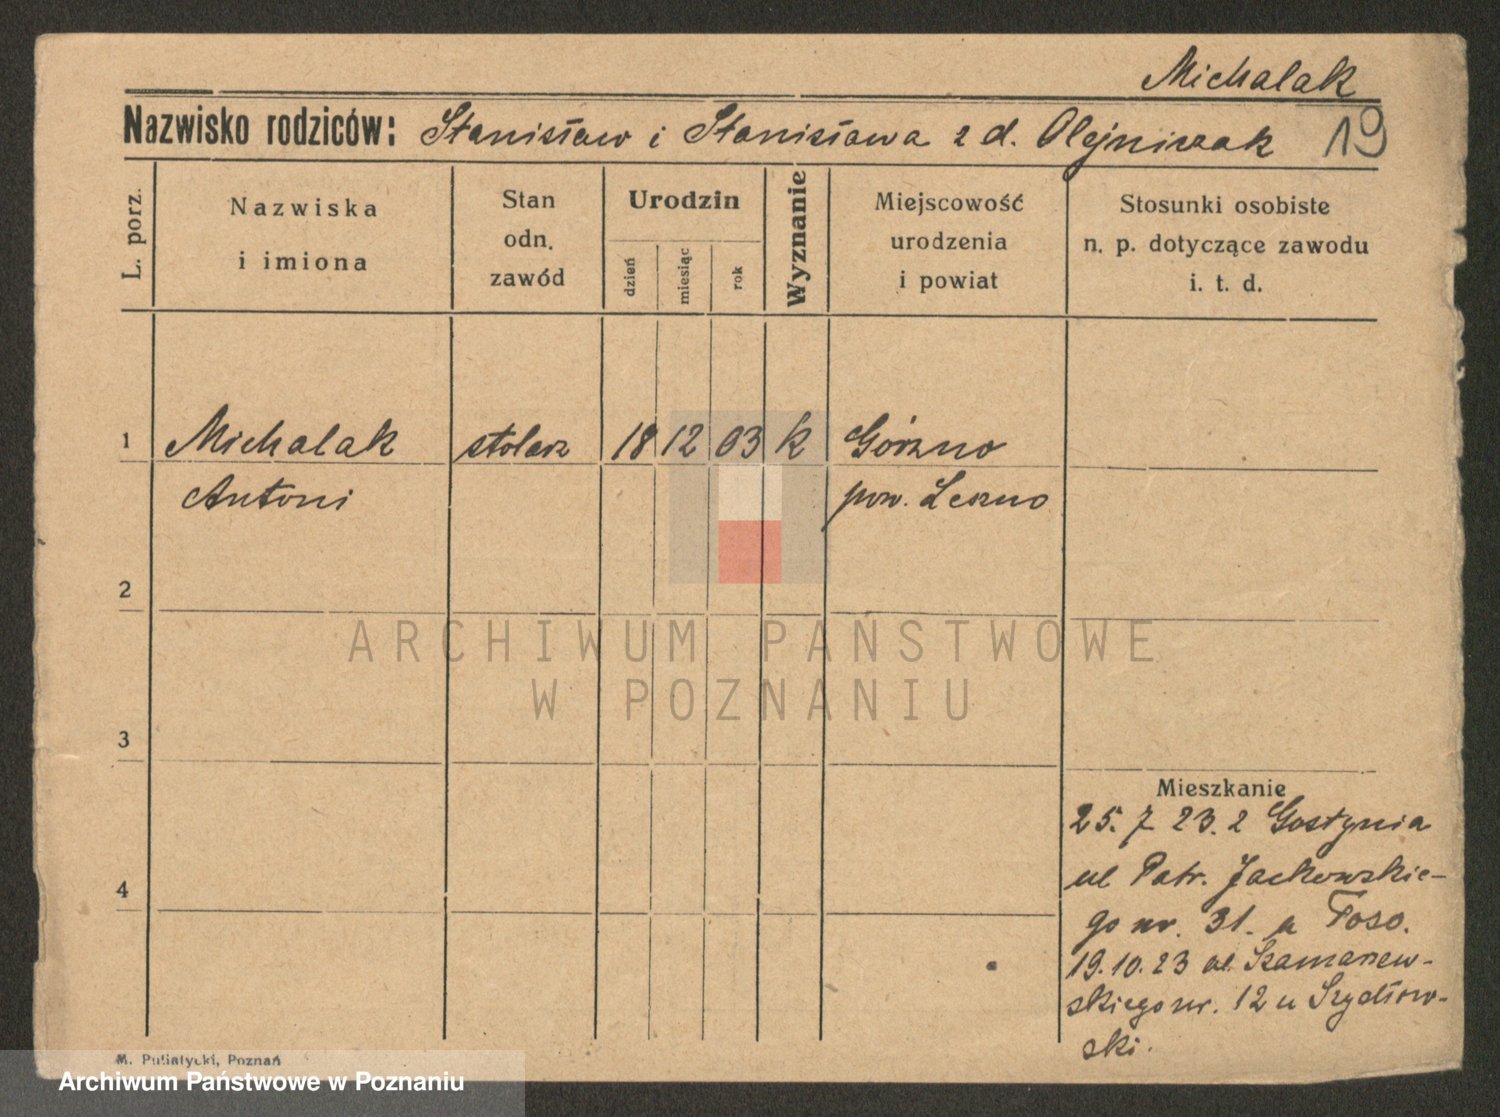 Michalak
Nazwisko rodziców: Stanisław i Stanisława z d. Olejniczak 19
L. porz.
Nazwiska
i imiona
Stan
odn.
zawód
Urodzin
dzień
miesiąc
rok
Wyznanie
Miejscowość
urodzenia
i powiat
Stosunki osobiste
n. p. dotyczące zawodu
i. t. d.
1 Michalak stolarz 18 12 03 k Górzno
Antoni pow. Leszno
2
ARCHIWUM PAŃSTWOWE
W POZNANIU
3
Mieszkanie
25. 7 23. z Gostynia
ul Patr. Jackowskie-
4
go nr. 31. u
19.10.23 ul. Szamarzew-
skiego nr. 12 u Szydłow-
ski.
M. Putiatycki, Poznań
Archiwum Państwowe w Poznaniu